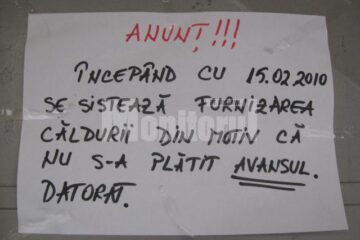 ANUNȚ!!!
ÎNCEPÂND CU 15.02.2010
SE SISTEAZĂ FURNIZAREA
CĂLDURII DIN MOTIV CĂ
Monitorul
NU S-A PLĂTIT AVANSUL.
DATORAT.